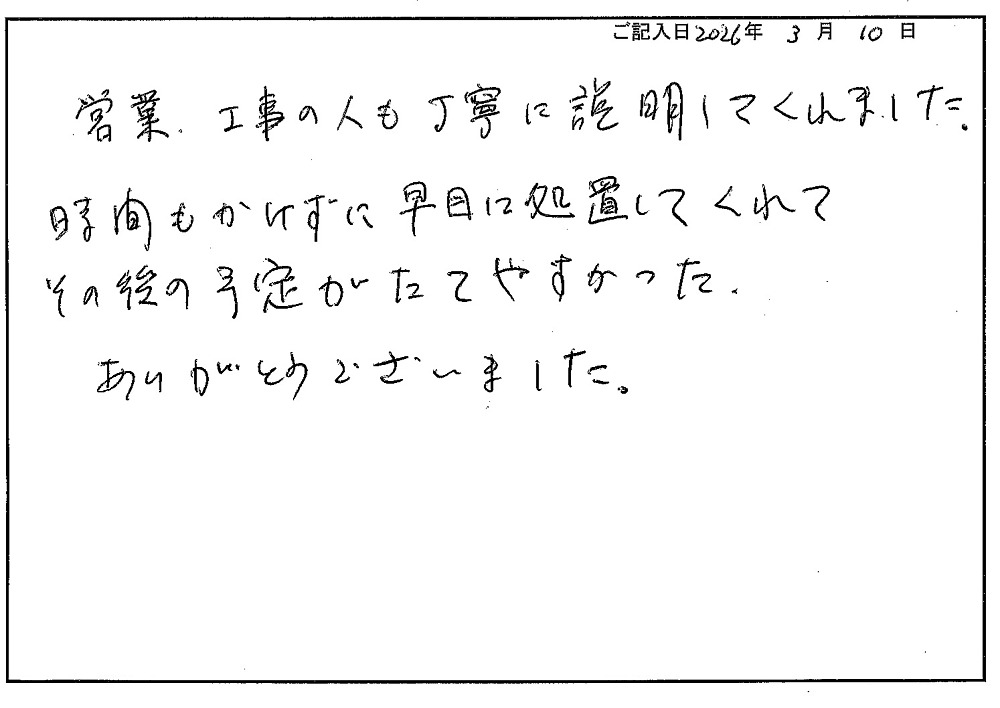 ご記入日2026年 3月 10日
営業、工事の人も丁寧に説明してくれました。
時間もかけずに早目に処置してくれて
その後の予定がたてやすかった。
ありがとうございました。